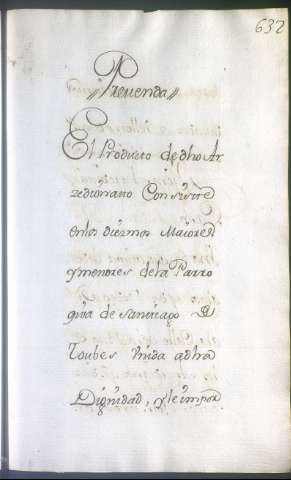 632
Prevenda
El Producto de dho Ar
zedianato Consiste
en los diezmos Maiores
y menores de la Parro
quia de Santiago de
Toubes Vnida a dha
Dignidad, y le impor